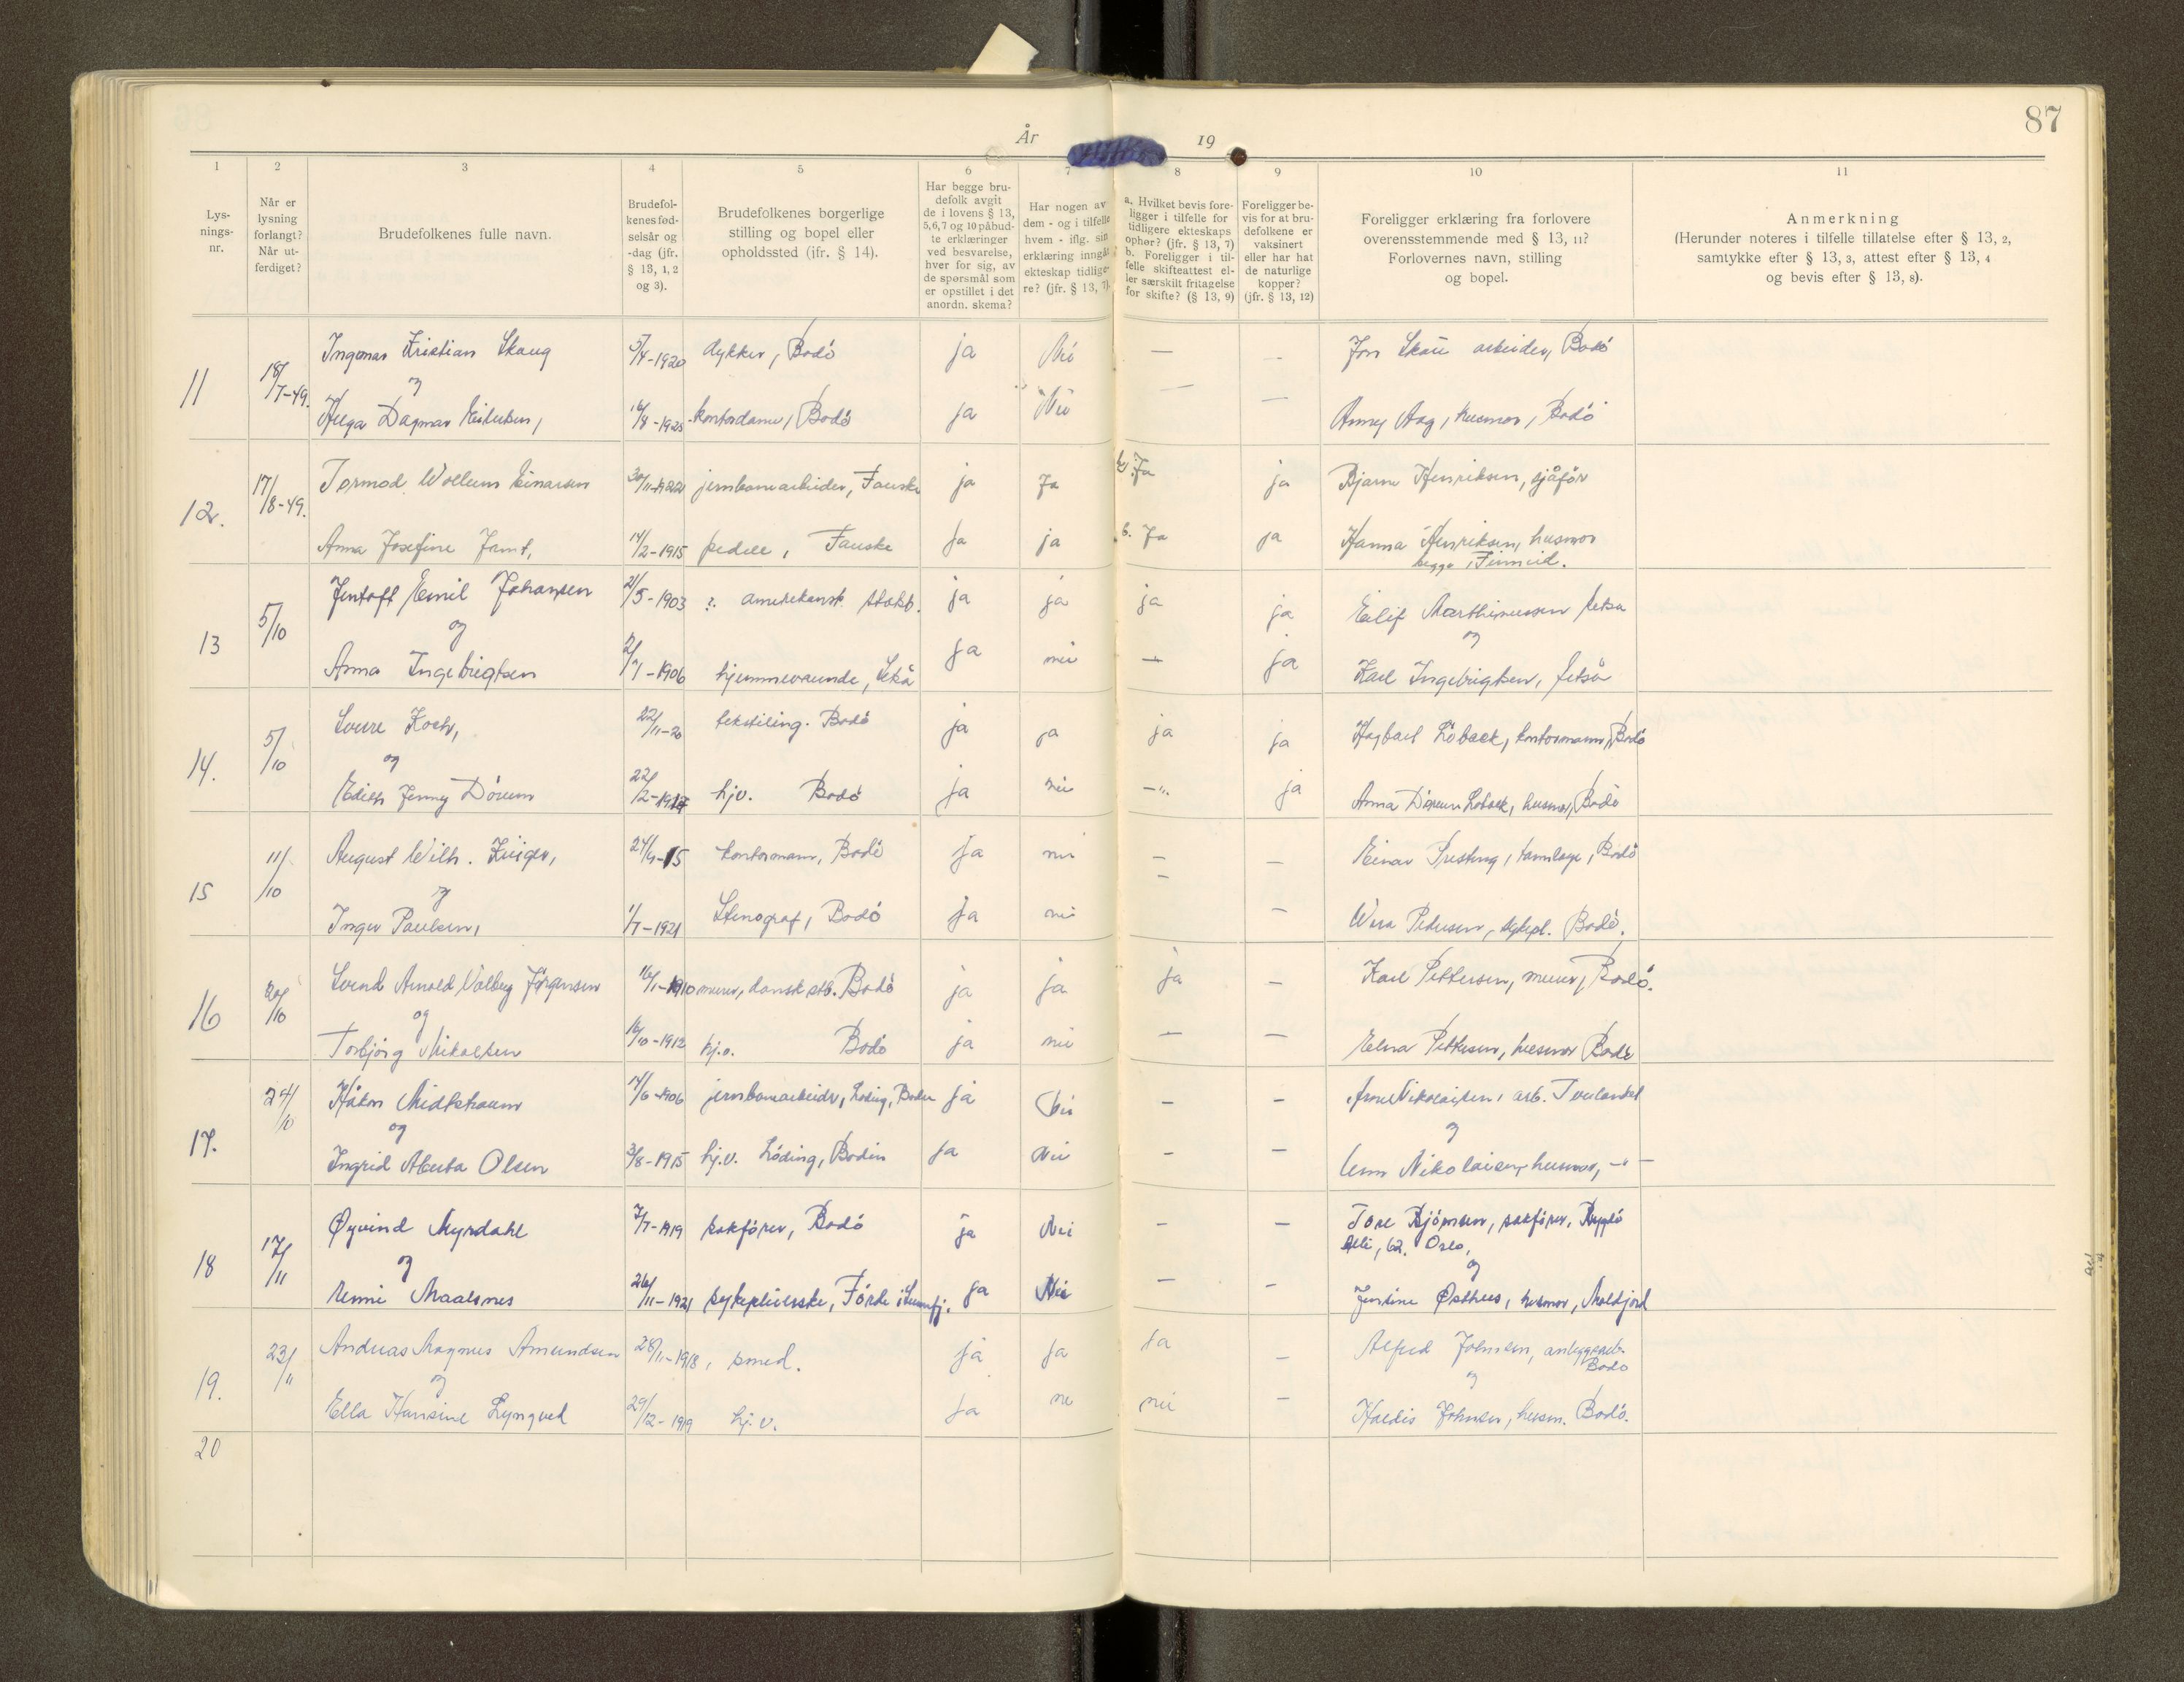 87
År 19
1 2 3 4 5 6 7 8 9 10 11
Lys-
nings-
nr.
Når er
lysning
forlangt?
Når ut-
ferdiget?
Brudefolkenes fulle navn.
Brudefol-
kenes fød-
selsår og
-dag (jfr.
§ 13, 1, 2
og 3).
Brudefolkenes borgerlige
stilling og bopel eller
opholdssted (jfr. § 14).
Har begge bru-
defolk avgit
de i lovens § 13,
5,6,7 og 10 påbud-
te erklæringer
ved besvarelse,
hver for sig, av
de spørsmål som
er opstillet i det
anordn. skema?
Har nogen av
dem - og i tilfelle
hvem - iflg. sin
erklæring inngåt
ekteskap tidlige-
re? (jfr. § 13, 7).
a. Hvilket bevis fore-
ligger i tilfelle for
tidligere ekteskaps
ophør? (jfr. § 13, 7)
b. Foreligger i til-
felle skifteattest el-
ler særskilt fritagelse
for skifte? (§ 13, 9)
Foreligger be-
vis for at bru-
defolkene er
vaksinert
eller har hat
de naturlige
kopper?
(jfr. § 13, 12)
Foreligger erklæring fra forlovere
overensstemmende med § 13, 11?
Forlovernes navn, stilling
og bopel.
Anmerkning
(Herunder noteres i tilfelle tillatelse efter § 13, 2,
samtykke efter § 13, 3, attest efter § 13, 4
og bevis efter § 13, 8).
11 18/7-49. Ingomar Kristian Skaug 5/4-1920 dykker, Bodö ja Nei — - Jon arbeider, Bodö
og
Helga Dagmar ja Nei — — Anny Aag, husmor, Bodö
12. 17/8-49. Tormod Wollum Einarsen 30/11-1922 jernbanearbeider, Fauske ja Ja Ja ja Bjarne Henriksen, sjåför
Anna Josefine 14/2-1915 pedell, Fauske Ja ja b. Ja ja Hanna Henriksen, husmor
begge, Finneid.
13 5/10 Jentoft Emil Johansen 21/5-1903 ?. amerikansk statsb. ja ja ja ja Eilif Marthinussen
og og
Anna Ingebrigtsen 2/7-1906 hjemmeværende, ja nei — ja Karl Ingebrigtsen,
14. 5/10 Sverre Koch, 22/11-20 tekstiling. Bodö ja ja ja ja Hagbart Löbach, kontormann, Bodö
og
Edith Jenny Dörum 22/2-1917 hjv. Bodö ja nei —"— ja Anna Dörum Löbach, husmor, Bodö
15 11/10 August Wilh. 24/4-15 kontormann, Bodö Ja nei — — Einar tannlæge, Bodö
og —
Inger Paulsen, 1/7-1921 Stenograf, Bodö Ja nei — Wera Pedersen, sykepl. Bodö.
16 20/10 Svend Arnold Valberg Jörgensen 16/1-1910 murer, dansk stb. Bodö ja ja ja — Karl Pettersen, murer, Bodö.
og
Torbjörg Mikalsen 16/10-1912 hj.v. Bodö ja nei — — Elna Pettersen, husmor Bodö
17. 24/10 Håkon Midtstraum 14/6-1906 jernbanearbeider, Löding, Bodin ja Nei — — Arne Nikolaisen, arb. Tverlandet
og og
Ingrid Alberta Olsen 3/8-1915 hj.v. Löding, Bodin Ja Nei — — Nikolaisen, husmor, -"-
18 17/11 Øyvind Myrdahl 7/7-1919 sakförer, Bodö ja Nei — — Tore Björnsen, sakförer, Bygdö
Alle, 62. Oslo,
og og
Emmi Maalsnes 26/11-1921 sykepleierske, Förde i Sunnfj. ja Nei — — Jensine Østhus, husmor, Moldjord
19. 23/11 Andreas Magnus Amundsen 28/11-1918, smed. ja Ja Ja — Alfred Johnsen, anleggsarb.
Bodö
og og
Ella Hansine Lyngved 29/12-1919 hj.v. Ja ne nei — Haldis Johnsen, husm. Bodö.
20